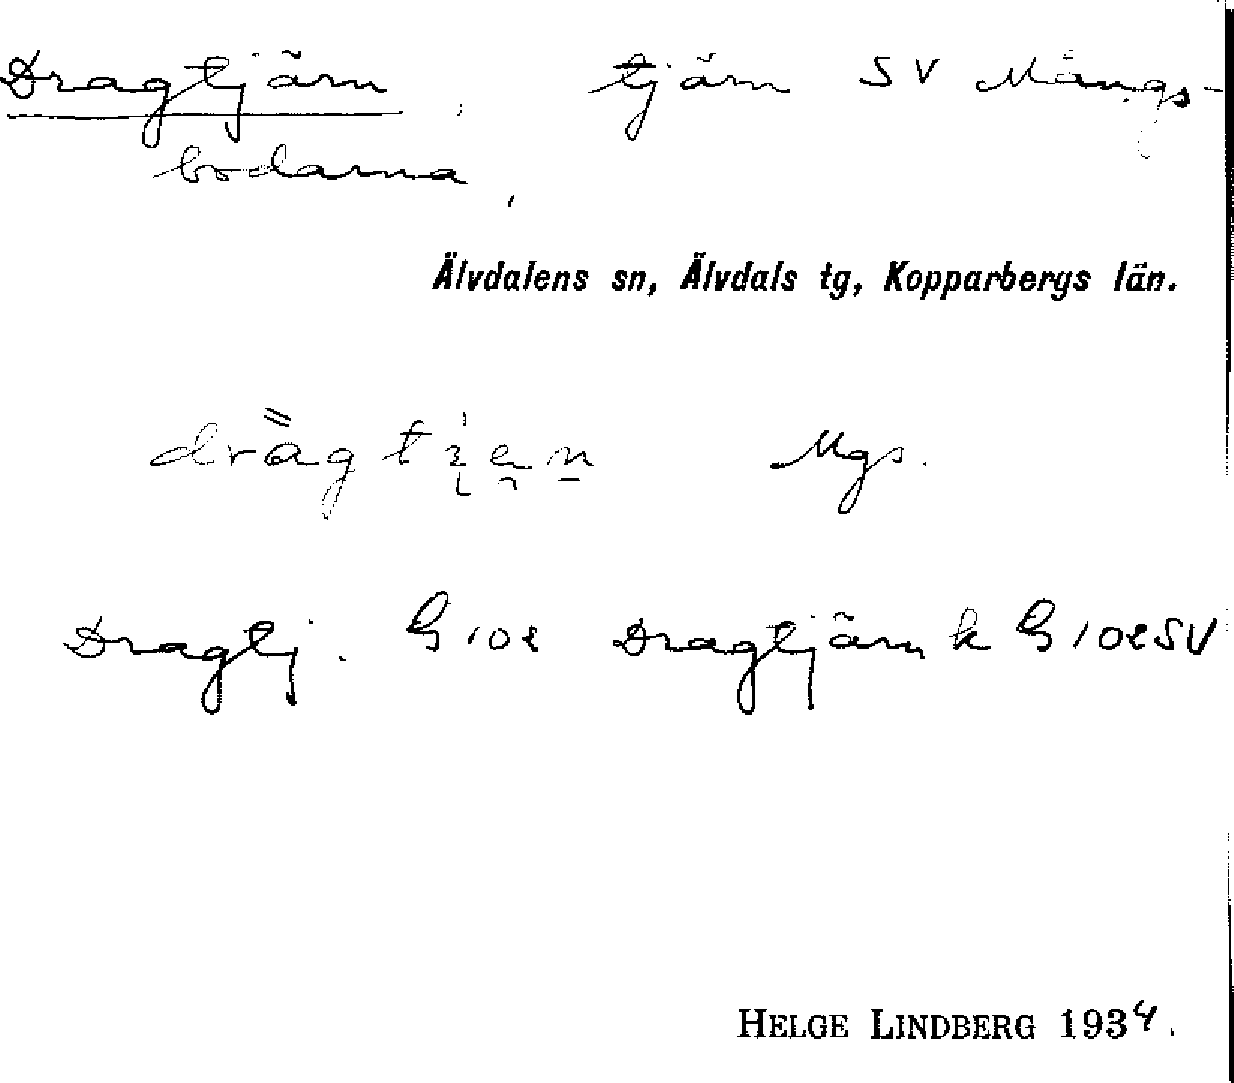 Dragtjärn, tjärn SV Mångs-
bodarna,
Älvdalens sn, Älvdals tg, Kopparbergs län.
Mgs.
Dragtj. G 102 Dragtjärn k G 102 SV
HELGE LINDBERG 1934.